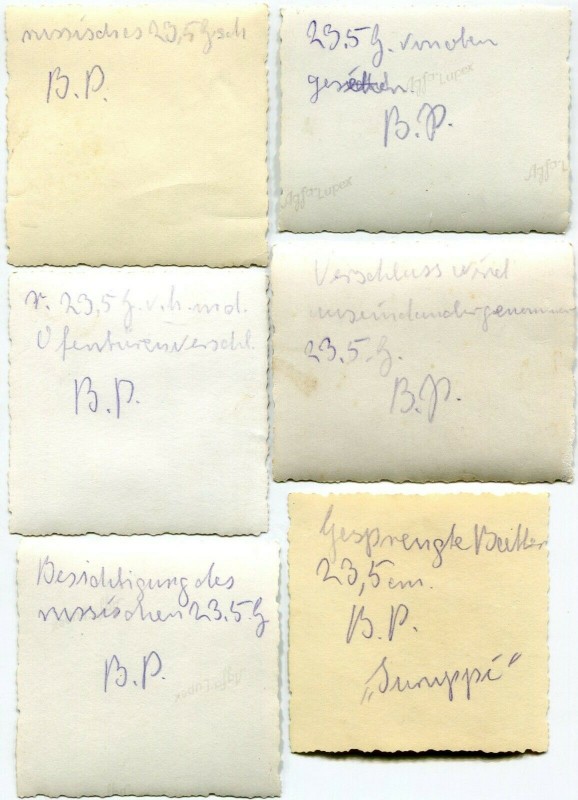 russisches 23,5 Gsch
B.P.
23.5 G. von oben
gesehen
Agfa-Lupex
B.P.
Agfa-Lupex
Agfa
r. 23,5 G. v. h. m. d.
Ofentürenverschl.
B.P.
Verschluss wird
auseinandergenommen
23.5 G.
B.P.
Besichtigung des
russischen 23.5 G
B.P.
Agfa-Lupex
Gesprengte Batter
23,5 cm.
B.P.
„Suruppi“